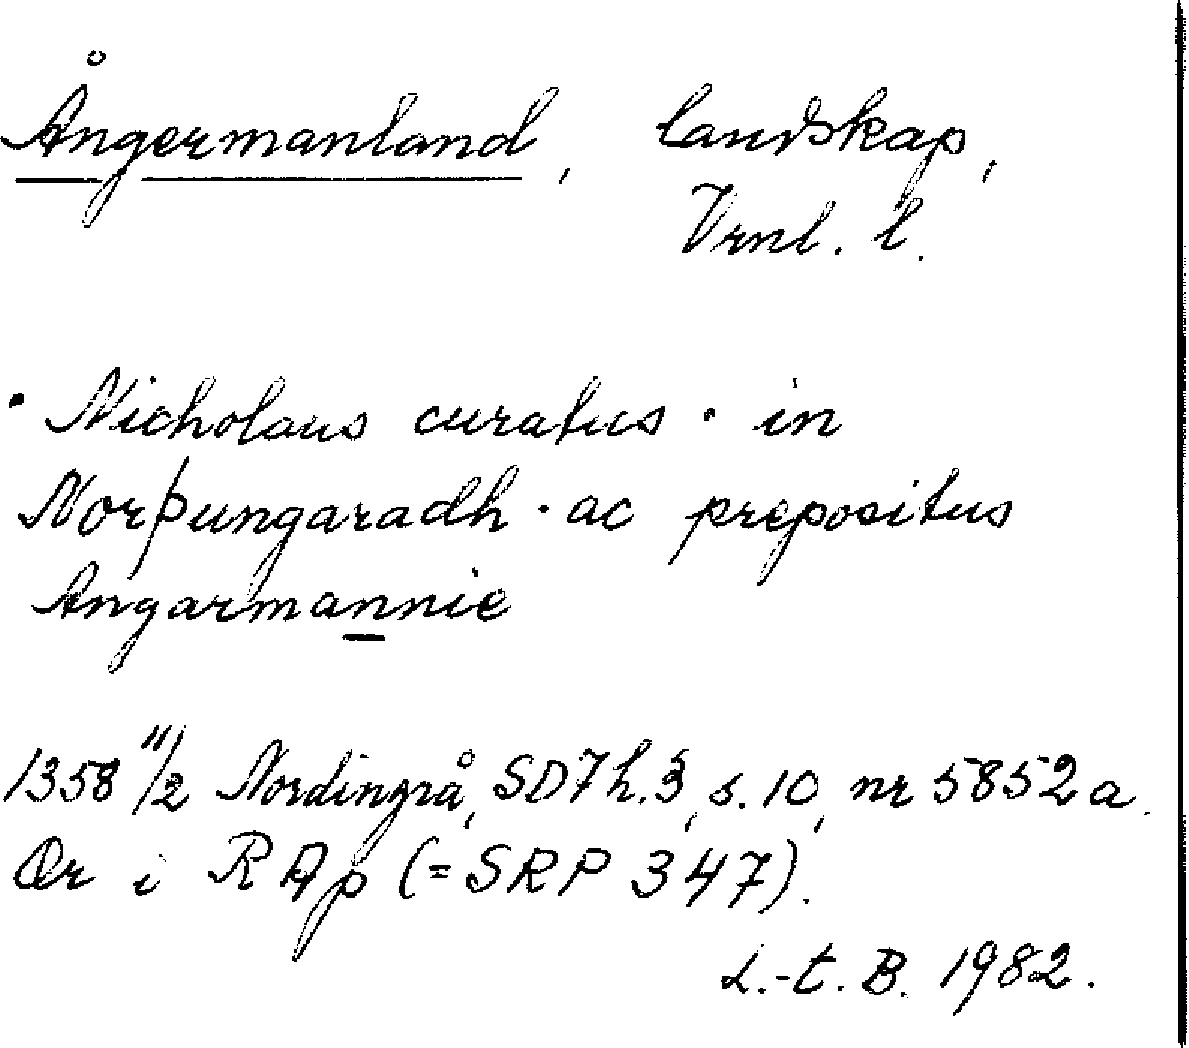 Ångermanland, landskap,
Vrnl. l.
· Nicholaus curatus · in
Norþungaradh · ac prepositus
Angarmannie
1358 11/2 Nordingrå, SD7h.3, s.10, nr 5852a.
Or i RAp (=SRP 347).
L.-t. B. 1982.